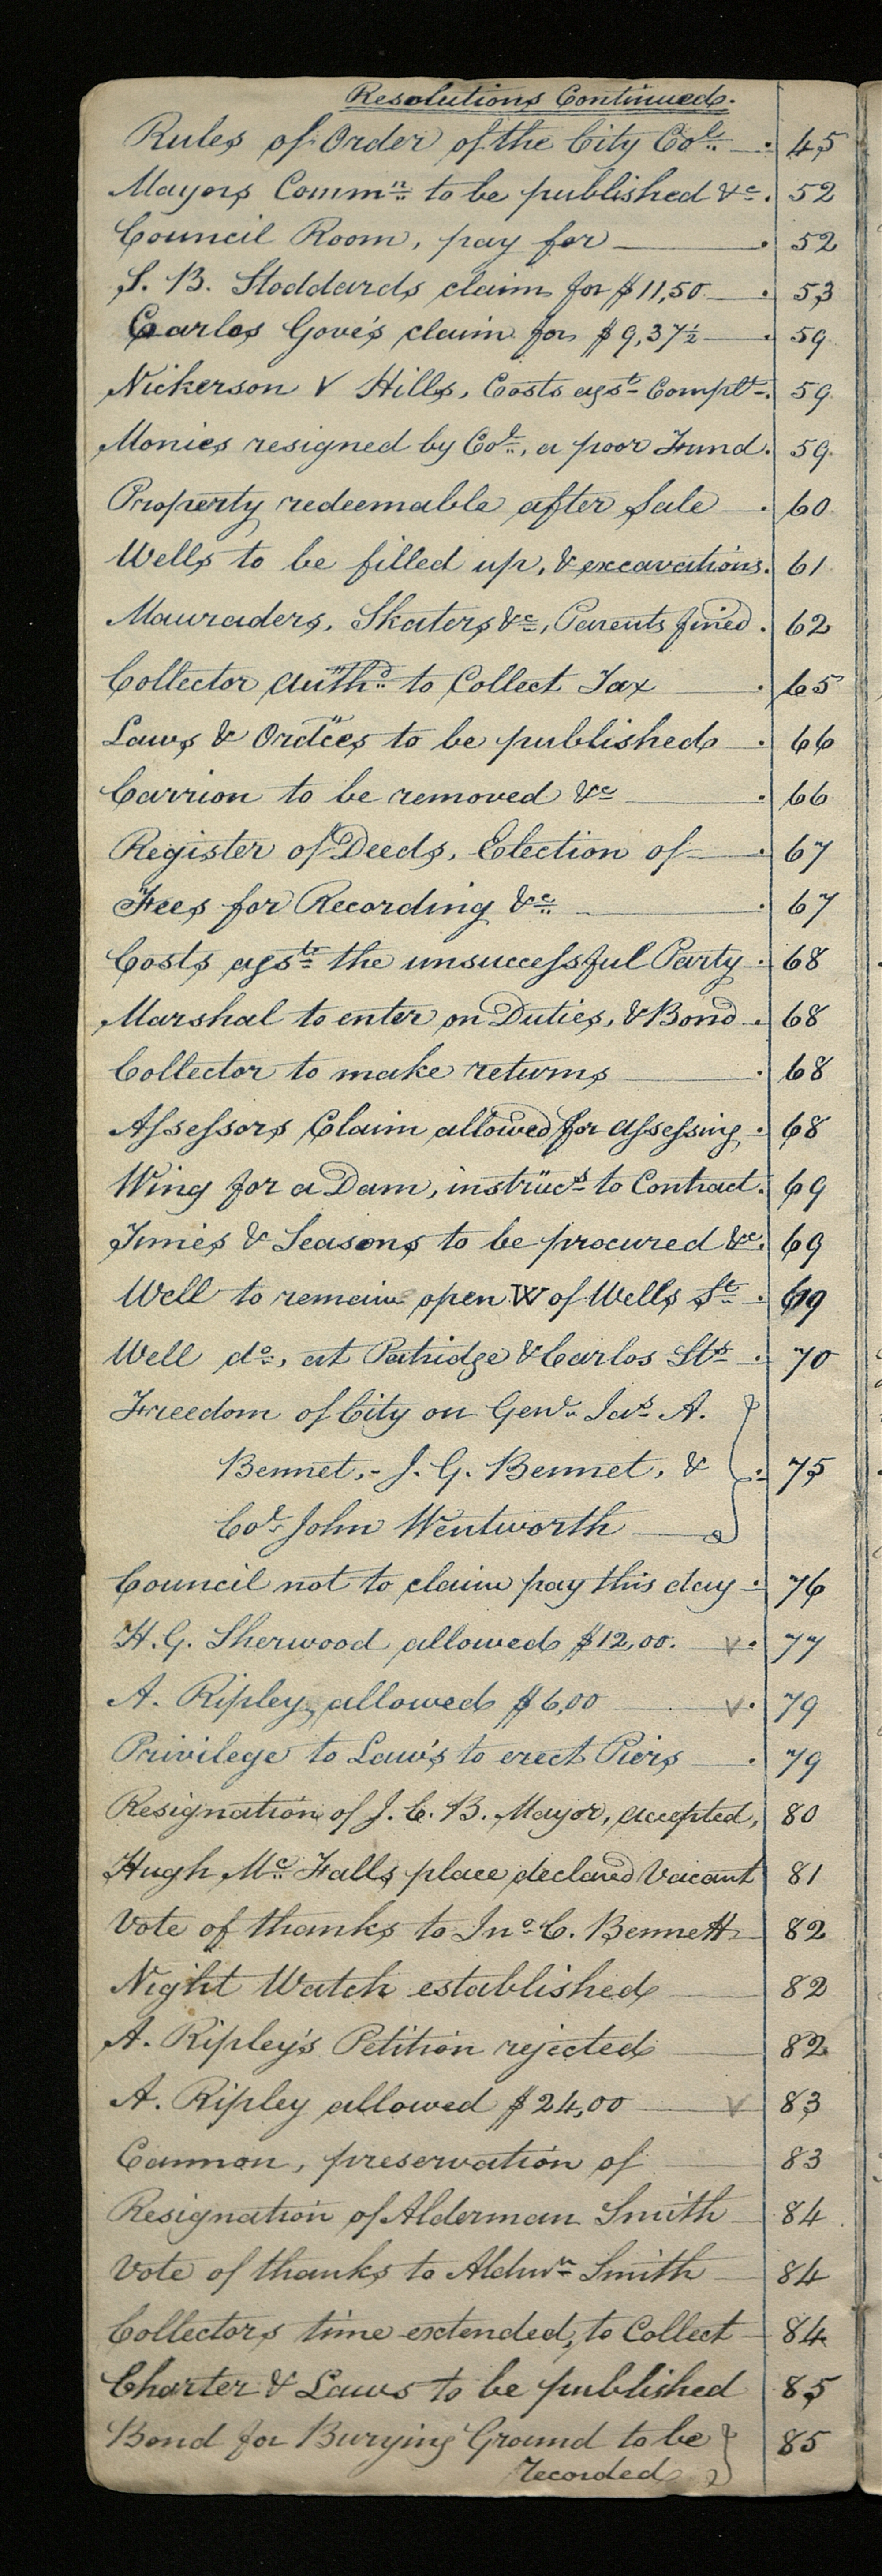 Resolutions Continued.
Rules of Order of the City Col. 45
Mayors Commn to be published &c. 52
Council Room, pay for 52
S. B. Stoddards claim for $11,50 53
Carlos Gove's claim for $9,37½ 59
Nickerson V Hills, Costs agst Complt. 59
Monies resigned by Col., a poor Fund. 59
Property redeemable after Sale 60
Wells to be filled up, & excavations. 61
Mauraders, Skaters &c, Parents fined. 62
Collector authd. to Collect Tax 65
Laws & Ordces to be published 66
Carrion to be removed &c 66
Register of Deeds, Election of 67
Fees for Recording &c. 67
Costs agst the unsuccessful Party 68
Marshal to enter on Duties, & Bond 68
Collector to make returns 68
Assessors Claim allowed for assessing 68
Wing for a Dam, instrucs to Contract. 69
Times & Seasons to be procured &c. 69
Well to remain open W of Wells St. 69
Well do, at Patridge & Carlos Sts 70
Freedom of City on Genl. Jas A.
Bennet, - J. G. Bennet, & 75
Col. John Wentworth
Council not to claim pay this day 76
H. G. Sherwood allowed $12,00. V 77
A. Ripley, allowed $6,00 V 79
Privilege to Law's to erect Piers 79
Resignation of J. C. B. Mayor, accepted, 80
Hugh Mc. Falls place declared Vacant 81
Vote of thanks to Jno C. Bennett 82
Night Watch established 82
A. Ripley's Petition rejected 82
A. Ripley allowed $24,00 V 83
Cannon, preservation of 83
Resignation of Alderman Smith 84
Vote of thanks to Aldmn Smith 84
Collectors time extended, to Collect 84
Charter & Laws to be published 85
Bond for Burying Ground to be 85
recorded